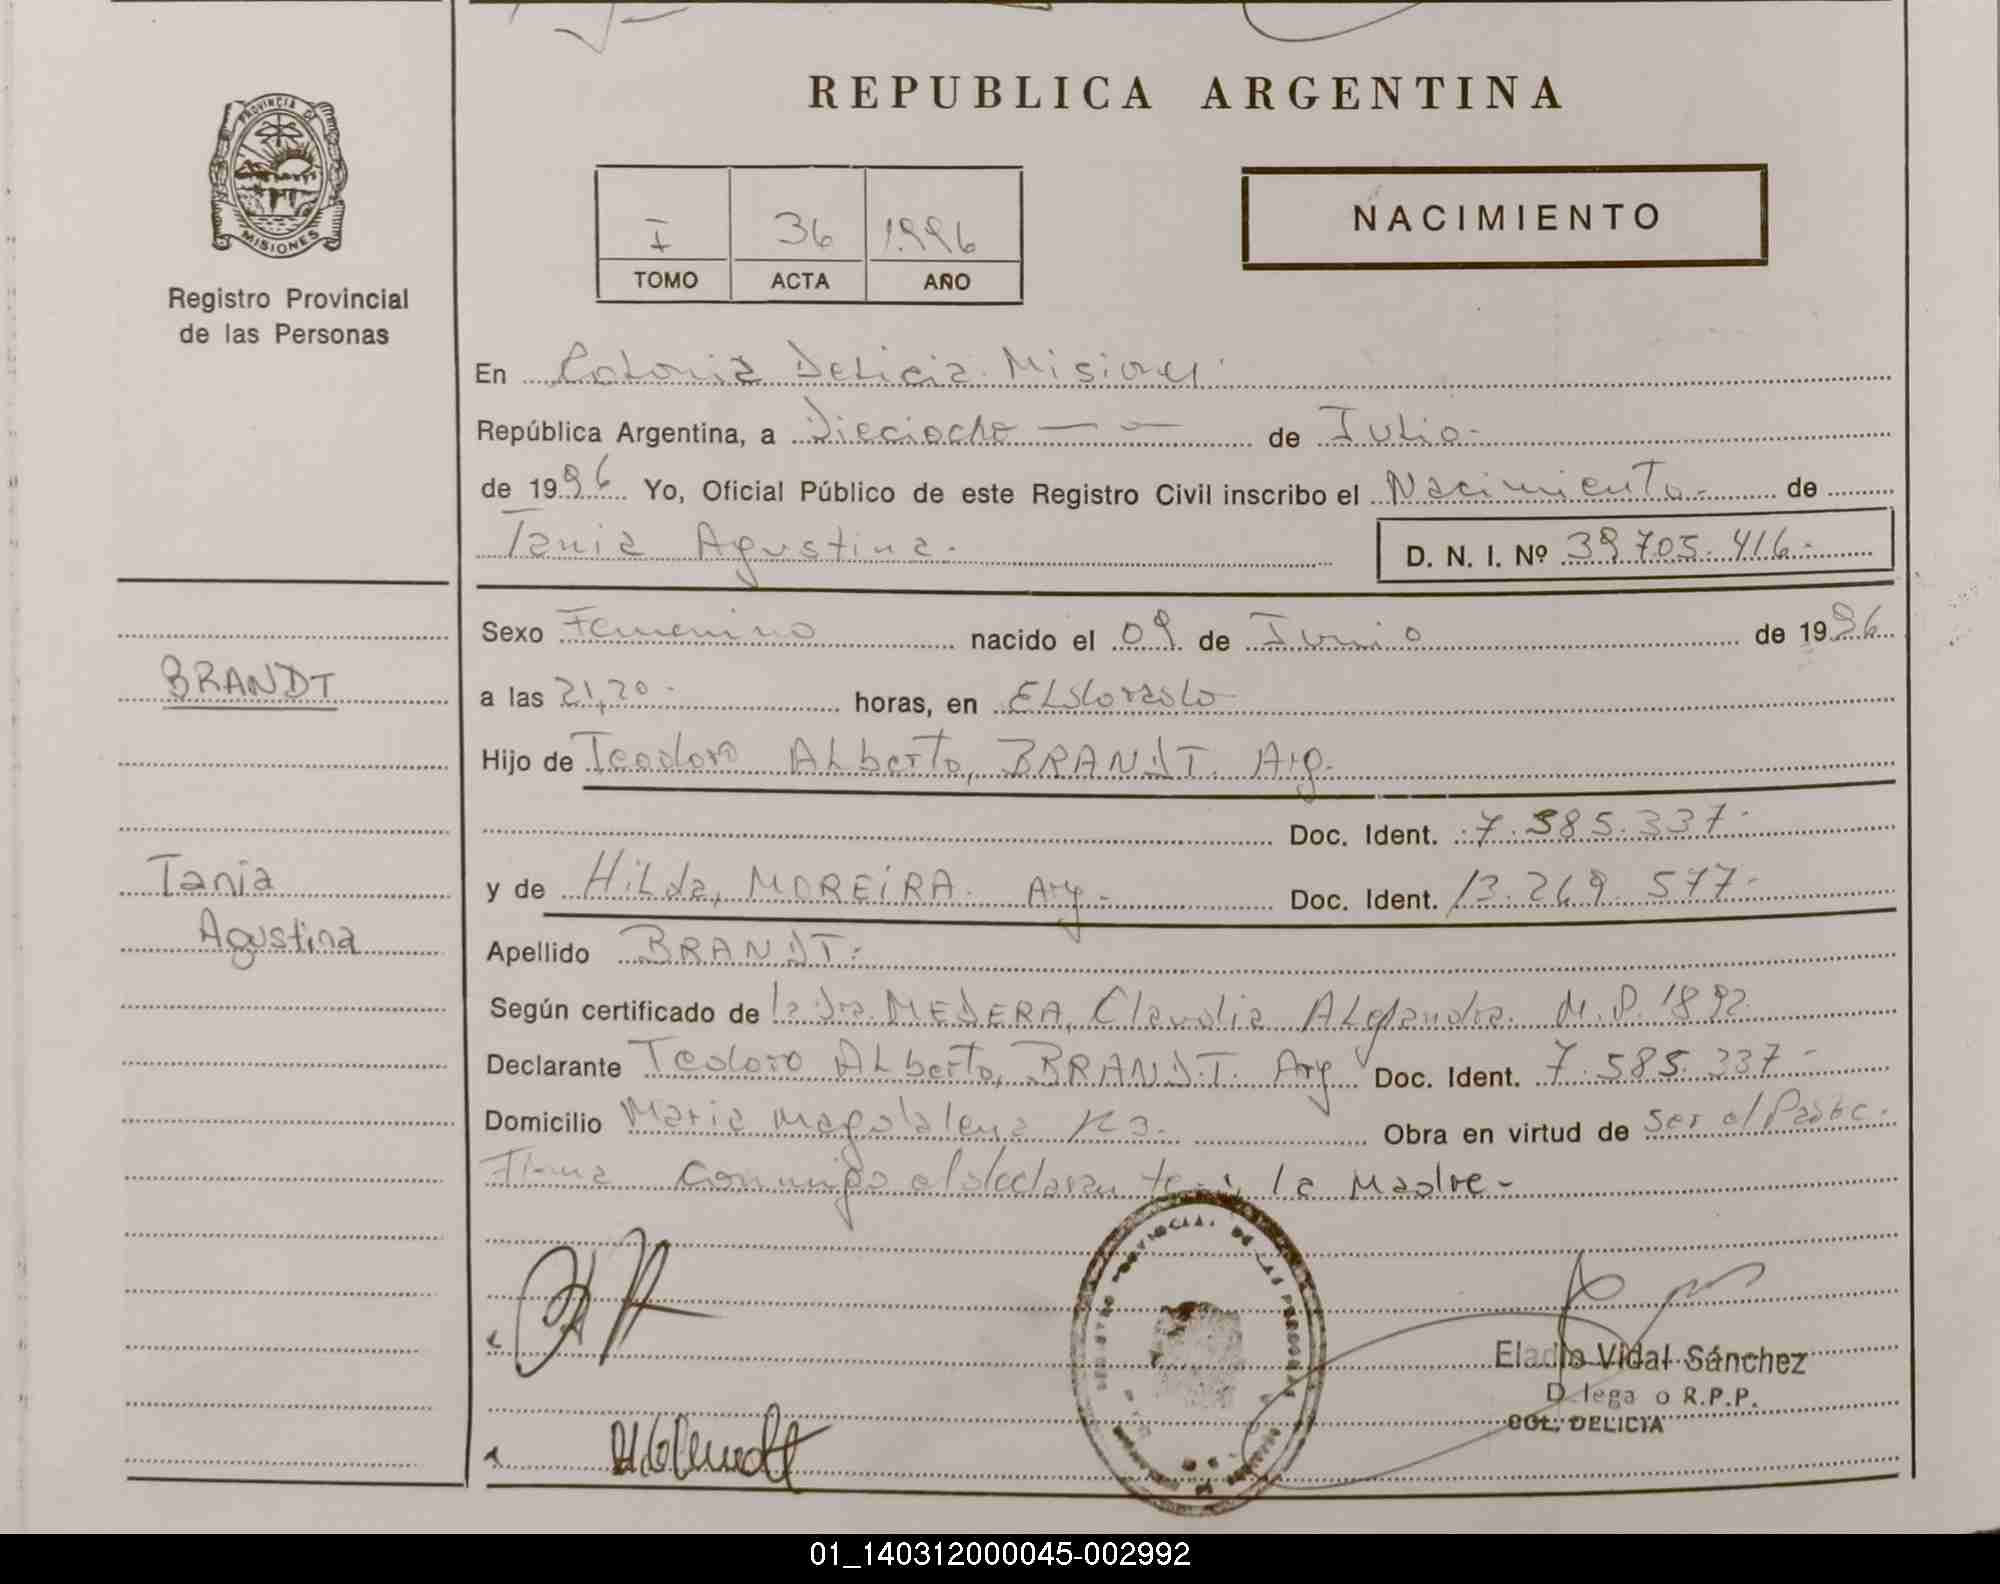 REPUBLICA ARGENTINA
PROVINCIA DE
MISIONES
Registro Provincial
de las Personas
I 36 1.996
TOMO ACTA AÑO
NACIMIENTO
En Colonia Delicia. Misiones.
República Argentina, a Dieciocho — — de Julio.-
de 1996 Yo, Oficial Público de este Registro Civil inscribo el Nacimiento.- de
Tania Agustina.-
D. N. I. Nº 39.705.416.-
Sexo Femenino nacido el 09 de Junio de 1996
BRANDT
a las 21,20.- horas, en Eldorado
Hijo de Teodoro Alberto, BRANDT. Arg.-
Doc. Ident. 7.585.337.-
Tania
y de Hilda, MOREIRA. Arg.- Doc. Ident. 13.269.577.-
Agustina
Apellido BRANDT.-
Según certificado de la Dra. MEDERA, Claudia Alejandra. M.P. 1892
Declarante Teodoro Alberto, BRANDT. Arg Doc. Ident. 7.585.337.-
Domicilio Maria Magdalena K3.- Obra en virtud de ser el Padre.-
Firma conmigo el declarante y la Madre-
Eladio Vidal Sánchez
Delegado R.P.P.
COL. DELICIA
01_140312000045-002992